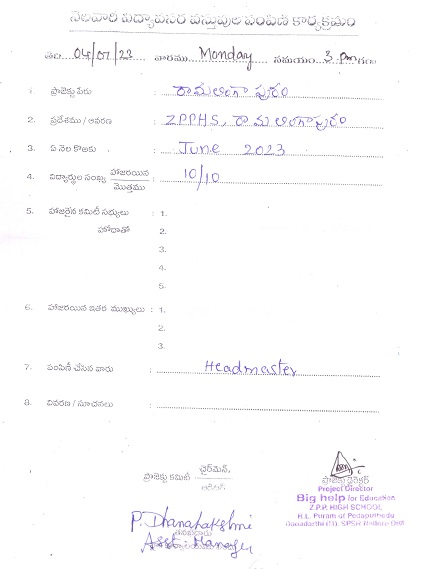 నెలవారి విద్యావసర వస్తువుల పంపిణీ కార్యక్రమం
తేది 04/07/23 వారము Monday సమయం 3 Pm గంట
1. ప్రాజెక్టు పేరు : రామలింగా పురం
2. ప్రదేశము / ఆవరణ : ZPPHS, రామలింగాపురం
3. ఏ నెల కొఱకు : June 2023
4. విద్యార్థుల సంఖ్య హాజరయిన : 10/10
మొత్తము
5. హాజరైన కమిటీ సభ్యులు : 1.
హోదాతో 2.
3.
4.
5.
6. హాజరయిన ఇతర ముఖ్యులు : 1.
2.
3.
7. పంపిణీ చేసిన వారు : Headmaster
8. వివరణ / సూచనలు :
ప్రాజెక్టు కమిటీ ఛైర్మన్,
ప్రాజెక్టు డైరెక్టర్
Project Director
Big help for Education
Z.P.P. HIGH SCHOOL
R.L. Puram of Pedaparthedu
P. Dhanalakshmi
Asst. Manager